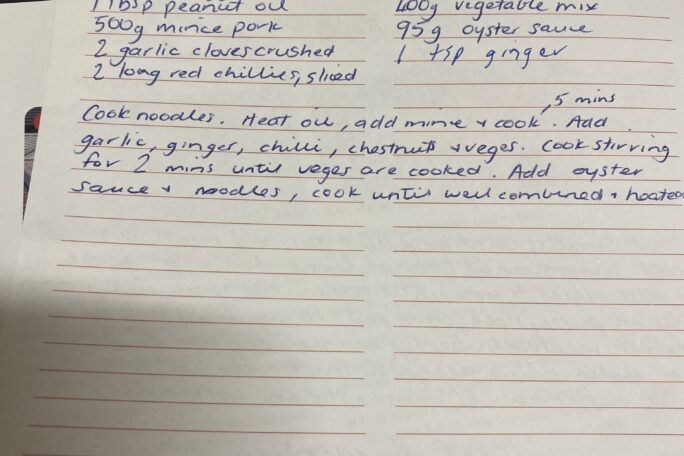 1 tbsp peanut oil
500g mince pork
2 garlic cloves crushed
2 long red chillies, sliced
400g vegetable mix
95g oyster sauce
1 tsp ginger
, 5 mins
Cook noodles. Heat oil, add mince + cook. Add
garlic, ginger, chilli, chestnuts + veges. Cook stirring
for 2 mins until veges are cooked. Add oyster
sauce + noodles, cook until well combined + heated